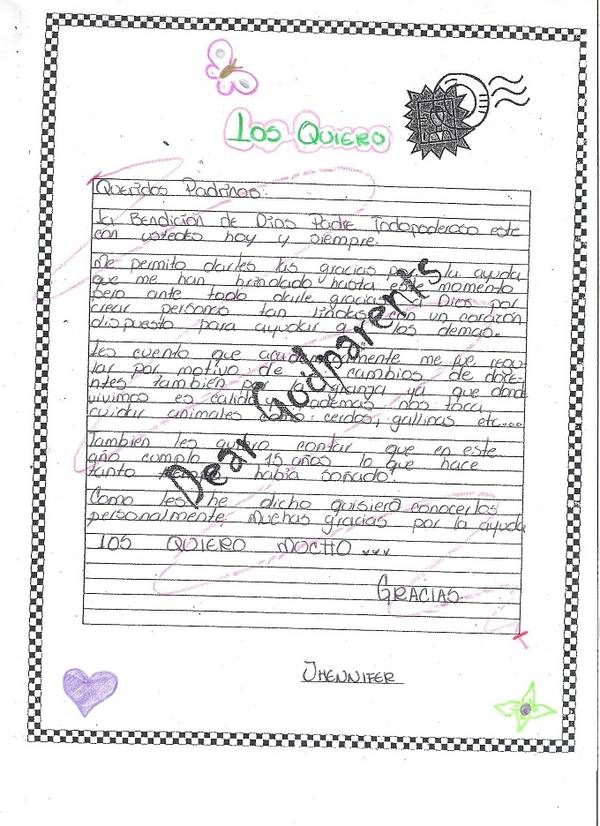 Los Quiero
Queridos Padrinos:
La Bendición de Dios Padre Todopoderoso este
con ustedes hoy y siempre.
Me permito darles las gracias por la ayuda
que me han brindado hasta este momento
pero ante todo darle gracias a Dios por
crear personas tan lindas con un corazón
dispuesto para ayudar a los demas.
Les cuento que academicamente me fue regu
lar por motivo de cambios de doce-
ntes tambien por la granja ya que donde
vivimos es calido ademas nos toca
cuidar animales como: cerdos, gallinas etc....
Tambien les quiero contar que en este
año cumplo 15 años lo que hace
tanto había soñado.
Como les he dicho quisiera conocerlos
personalmente. Muchas gracias por la ayuda
LOS QUIERO MOCHO
GRACIAS.
JHENNIFER
Dear Godparents